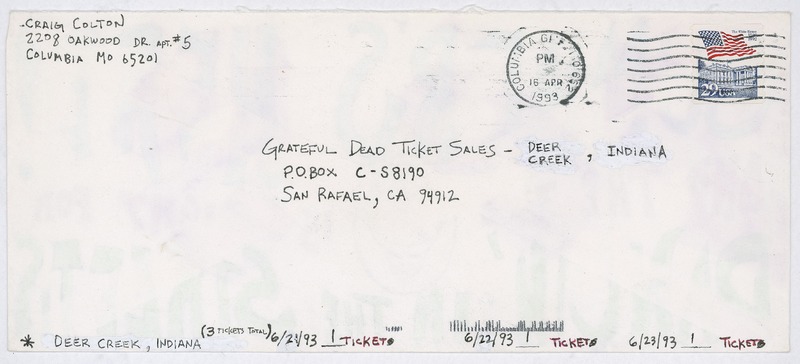 CRAIG COLTON
2208 OAKWOOD DR. APT. #5
COLUMBIA MO 65201
PM
16 APR
1993
29 USA
GRATEFUL DEAD TICKET SALES - DEER CREEK, INDIANA
P.O. BOX C-S8190
SAN RAFAEL, CA 94912
* DEER CREEK, INDIANA (3 TICKETS TOTAL) 6/21/93 1 TICKET 6/22/93 1 TICKET 6/23/93 1 TICKET